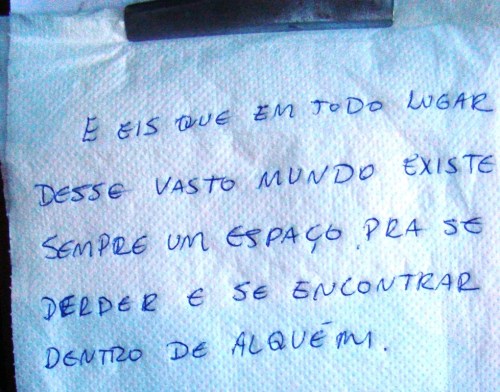 E EIS QUE EM TODO LUGAR
DESSE VASTO MUNDO EXISTE
SEMPRE UM ESPAÇO, PRA SE
DERDER E SE ENCONTRAR
DENTRO DE ALQUÉM.